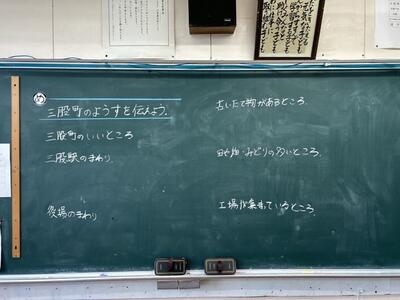 め
三股町のようすを伝えよう。
三股町のいいところ
三股駅のまわり
役場のまわり
古いたて物があるところ。
田や畑・みどりの多いところ。
工場が集まっているところ。